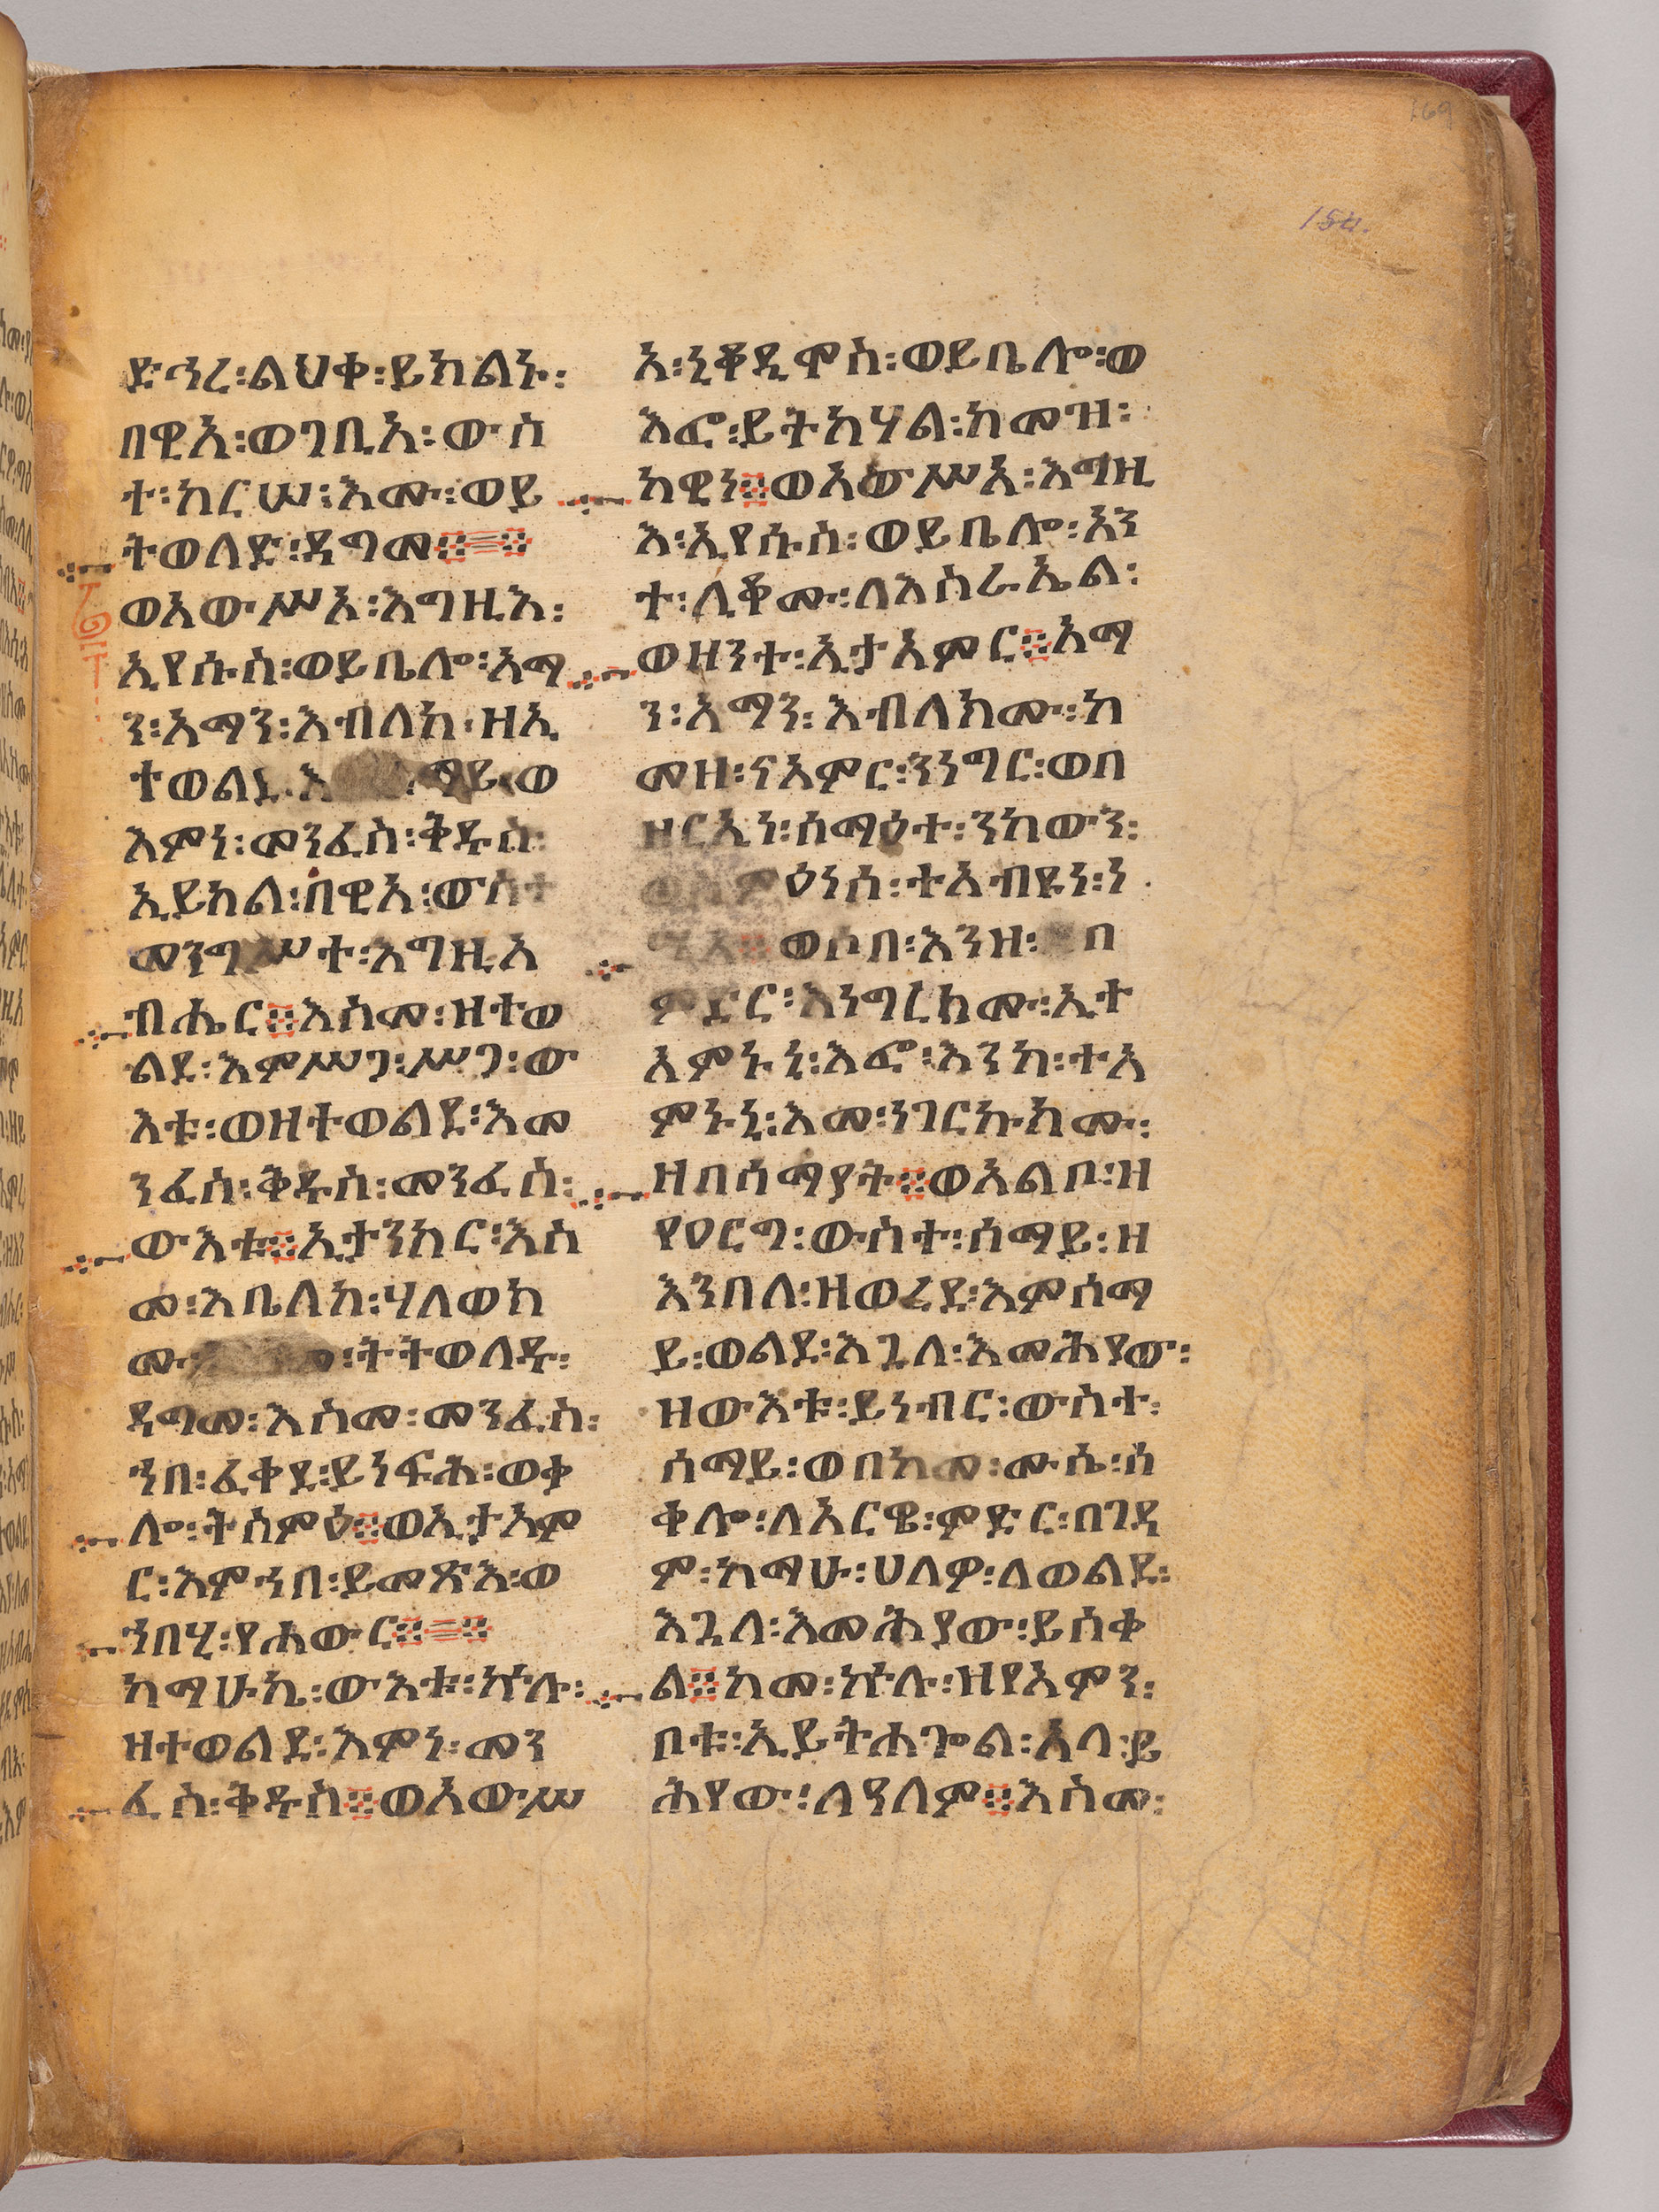 169
154.
ድኅረ፡ልህቀ፡ይክልኑ፡
በዊአ፡ወገቢአ፡ውስ
ተ፡ከርሠ፡እሙ፡ወይ
ትወለድ፡ዳግመ፨
ወአውሥአ፡እግዚእ፡
ኢየሱስ፡ወይቤሎ፡አማ
ን፡አማን፡እብለከ፡ዘኢ
ተወልደ
እምነ፡መንፈስ፡ቅዱስ፡
ኢይክል፡በዊአ፡ውስተ
መንግሥተ፡እግዚአ
ብሔር፨እስመ፡ዘተወ
ልደ፡እምሥጋ፡ሥጋ፡ው
እቱ፡ወዘተወልደ፡እመ
ንፈስ፡ቅዱስ፡መንፈስ፡
ውእቱ፨ኢታንክር፡እስ
መ፡እቤለከ፡ሃለወክ
ሙ ትትወለዱ፡
ዳግመ፡እስመ፡መንፈስ፡
ኀበ፡ፈቀደ፡ይነፍሕ፡ወቃ
ሎ፡ትሰምዕ፨ወኢታአም
ር፡እምኀበ፡ይመጽእ፡ወ
ኀበሂ፡የሐውር፨
ከማሁኬ፡ውእቱ፡ኵሉ፡
ዘተወልደ፡እምነ፡መን
ፈስ፡ቅዱስ፨ወአውሥ
አ፡ኒቆዲሞስ፡ወይቤሎ፡ወ
እፎ፡ይትከሃል፡ከመዝ፡
ከዊን፨ወአውሥአ፡እግዚ
እ፡ኢየሱስ፡ወይቤሎ፡አን
ተ፡ሊቆሙ፡ለእስራኤል፡
ወዘንተ፡ኢታአምር፨አማ
ን፡አማን፡እብለክሙ፡ከ
መዘ፡ናአምር፡ንነግር፡ወበ
ዘርኢነ፡ሰማዕተ፡ንከውን፡
ወስምዕነሰ፡ተአብዩን፡ነ
ሢአ፨ወሶበ፡እንዘ፡ በ
ምድር፡እነግረክሙ፡ኢተ
አምኑኒ፡እፎ፡እንከ፡ተአ
ምኑኒ፡እመ፡ነገርኩክሙ፡
ዘበሰማያት፨ወአልቦ፡ዘ
የዐርግ፡ውስተ፡ሰማይ፡ዘ
እንበለ፡ዘወረደ፡እምሰማ
ይ፡ወልደ፡እጓለ፡እመሕያው፡
ዘውእቱ፡ይነብር፡ውስተ፡
ሰማይ፡ወበከመ፡ሙሴ፡ሰ
ቀሎ፡ለአርዌ፡ምድር፡በገዳ
ም፡ከማሁ፡ሀለዎ፡ለወልደ፡
እጓለ፡እመሕያው፡ይሰቀ
ል፨ከመ፡ኵሉ፡ዘየአምን፡
በቱ፡ኢይትሐጐል፡አላ፡ይ
ሕየው፡ለዓለም፨እስመ፡